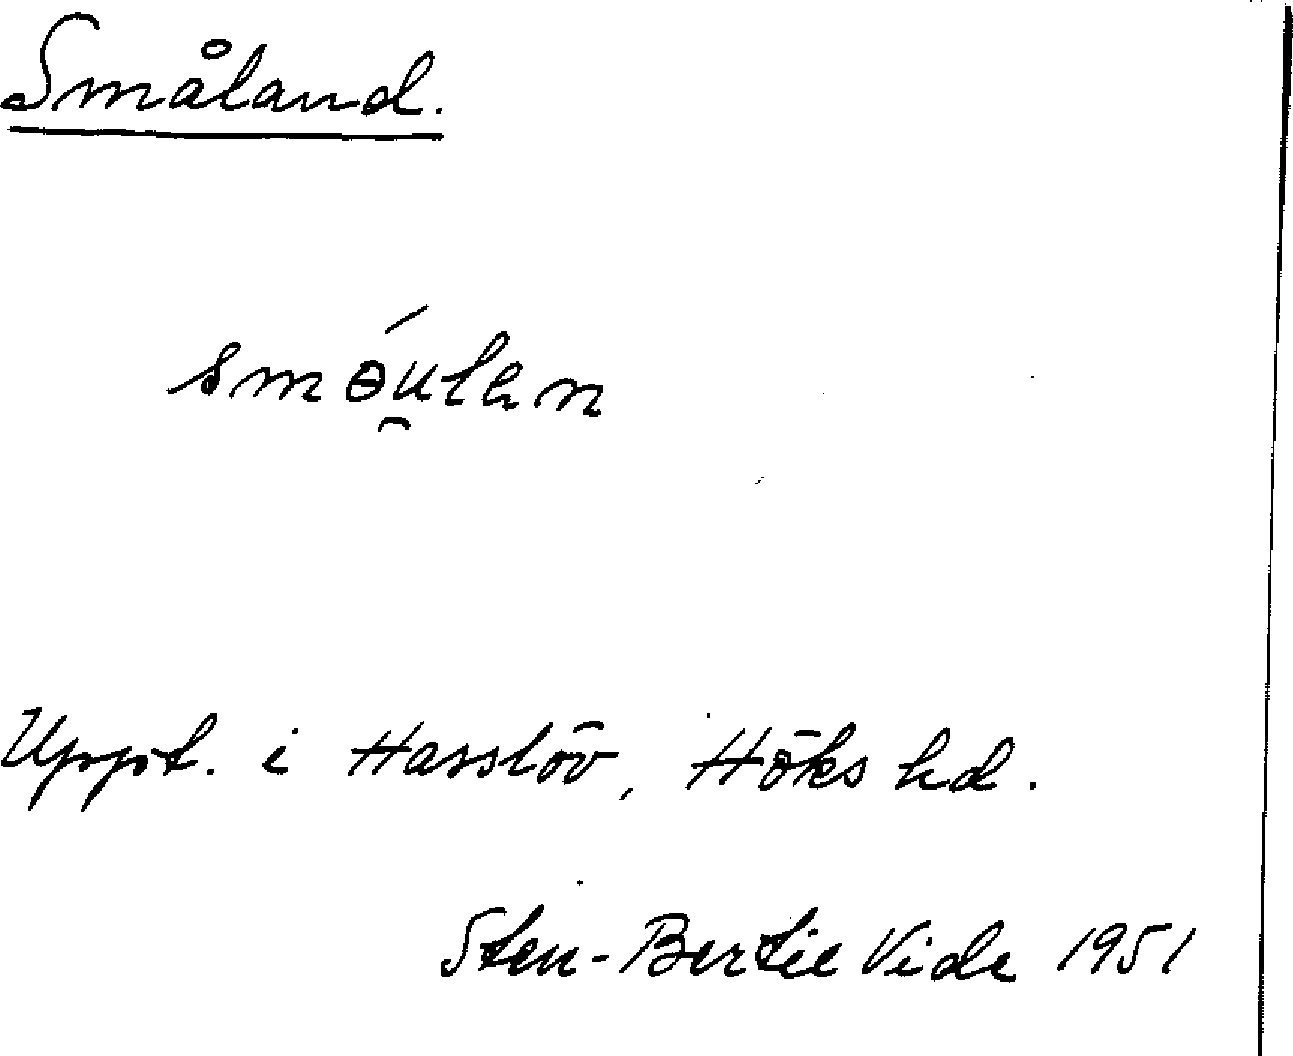 Småland.
smɵ́u̯lan
Uppt. i Hasslöv, Höks hd.
Sten-Bertil Vide 1951